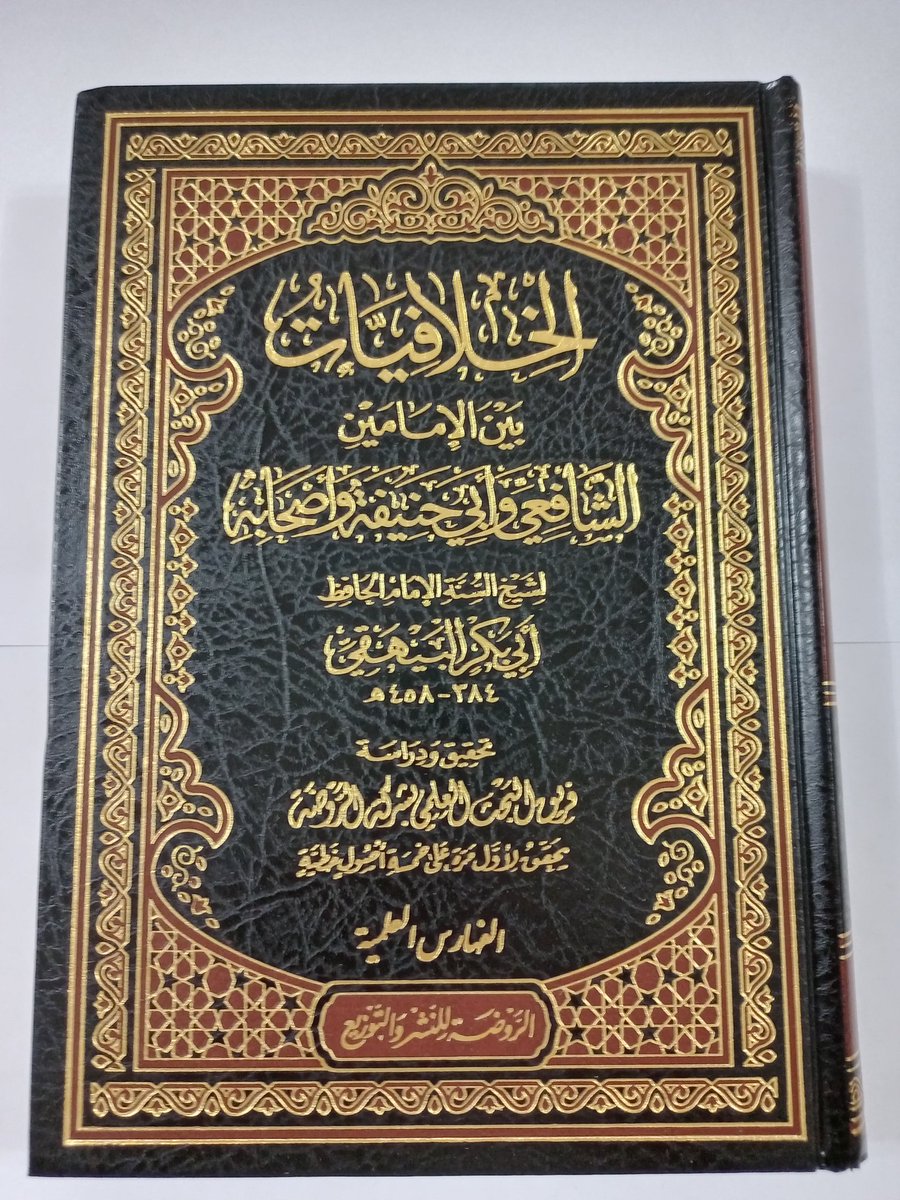 الخِلافيَّاتُ
بَيْنَ الإِمَامَيْنِ
الشَّافِعِي وَأَبِي حَنِيفَةَ وَأَصْحَابِهِ
لشَيْخِ السُّنَّةِ الإِمَامِ الحَافِظِ
أَبِي بَكْرٍ البَيْهَقِيِّ
٣٨٤ - ٤٥٨ هـ
تَحْقِيق وَدِرَاسَة
فريق البحث العلمي بشركة الروضة
يحقق لأوّل مرّة على خمسة أصول خطيّة
الفهارس العلمية
الرَّوضَة للنَّشْرِ وَالتَّوْزِيعِ